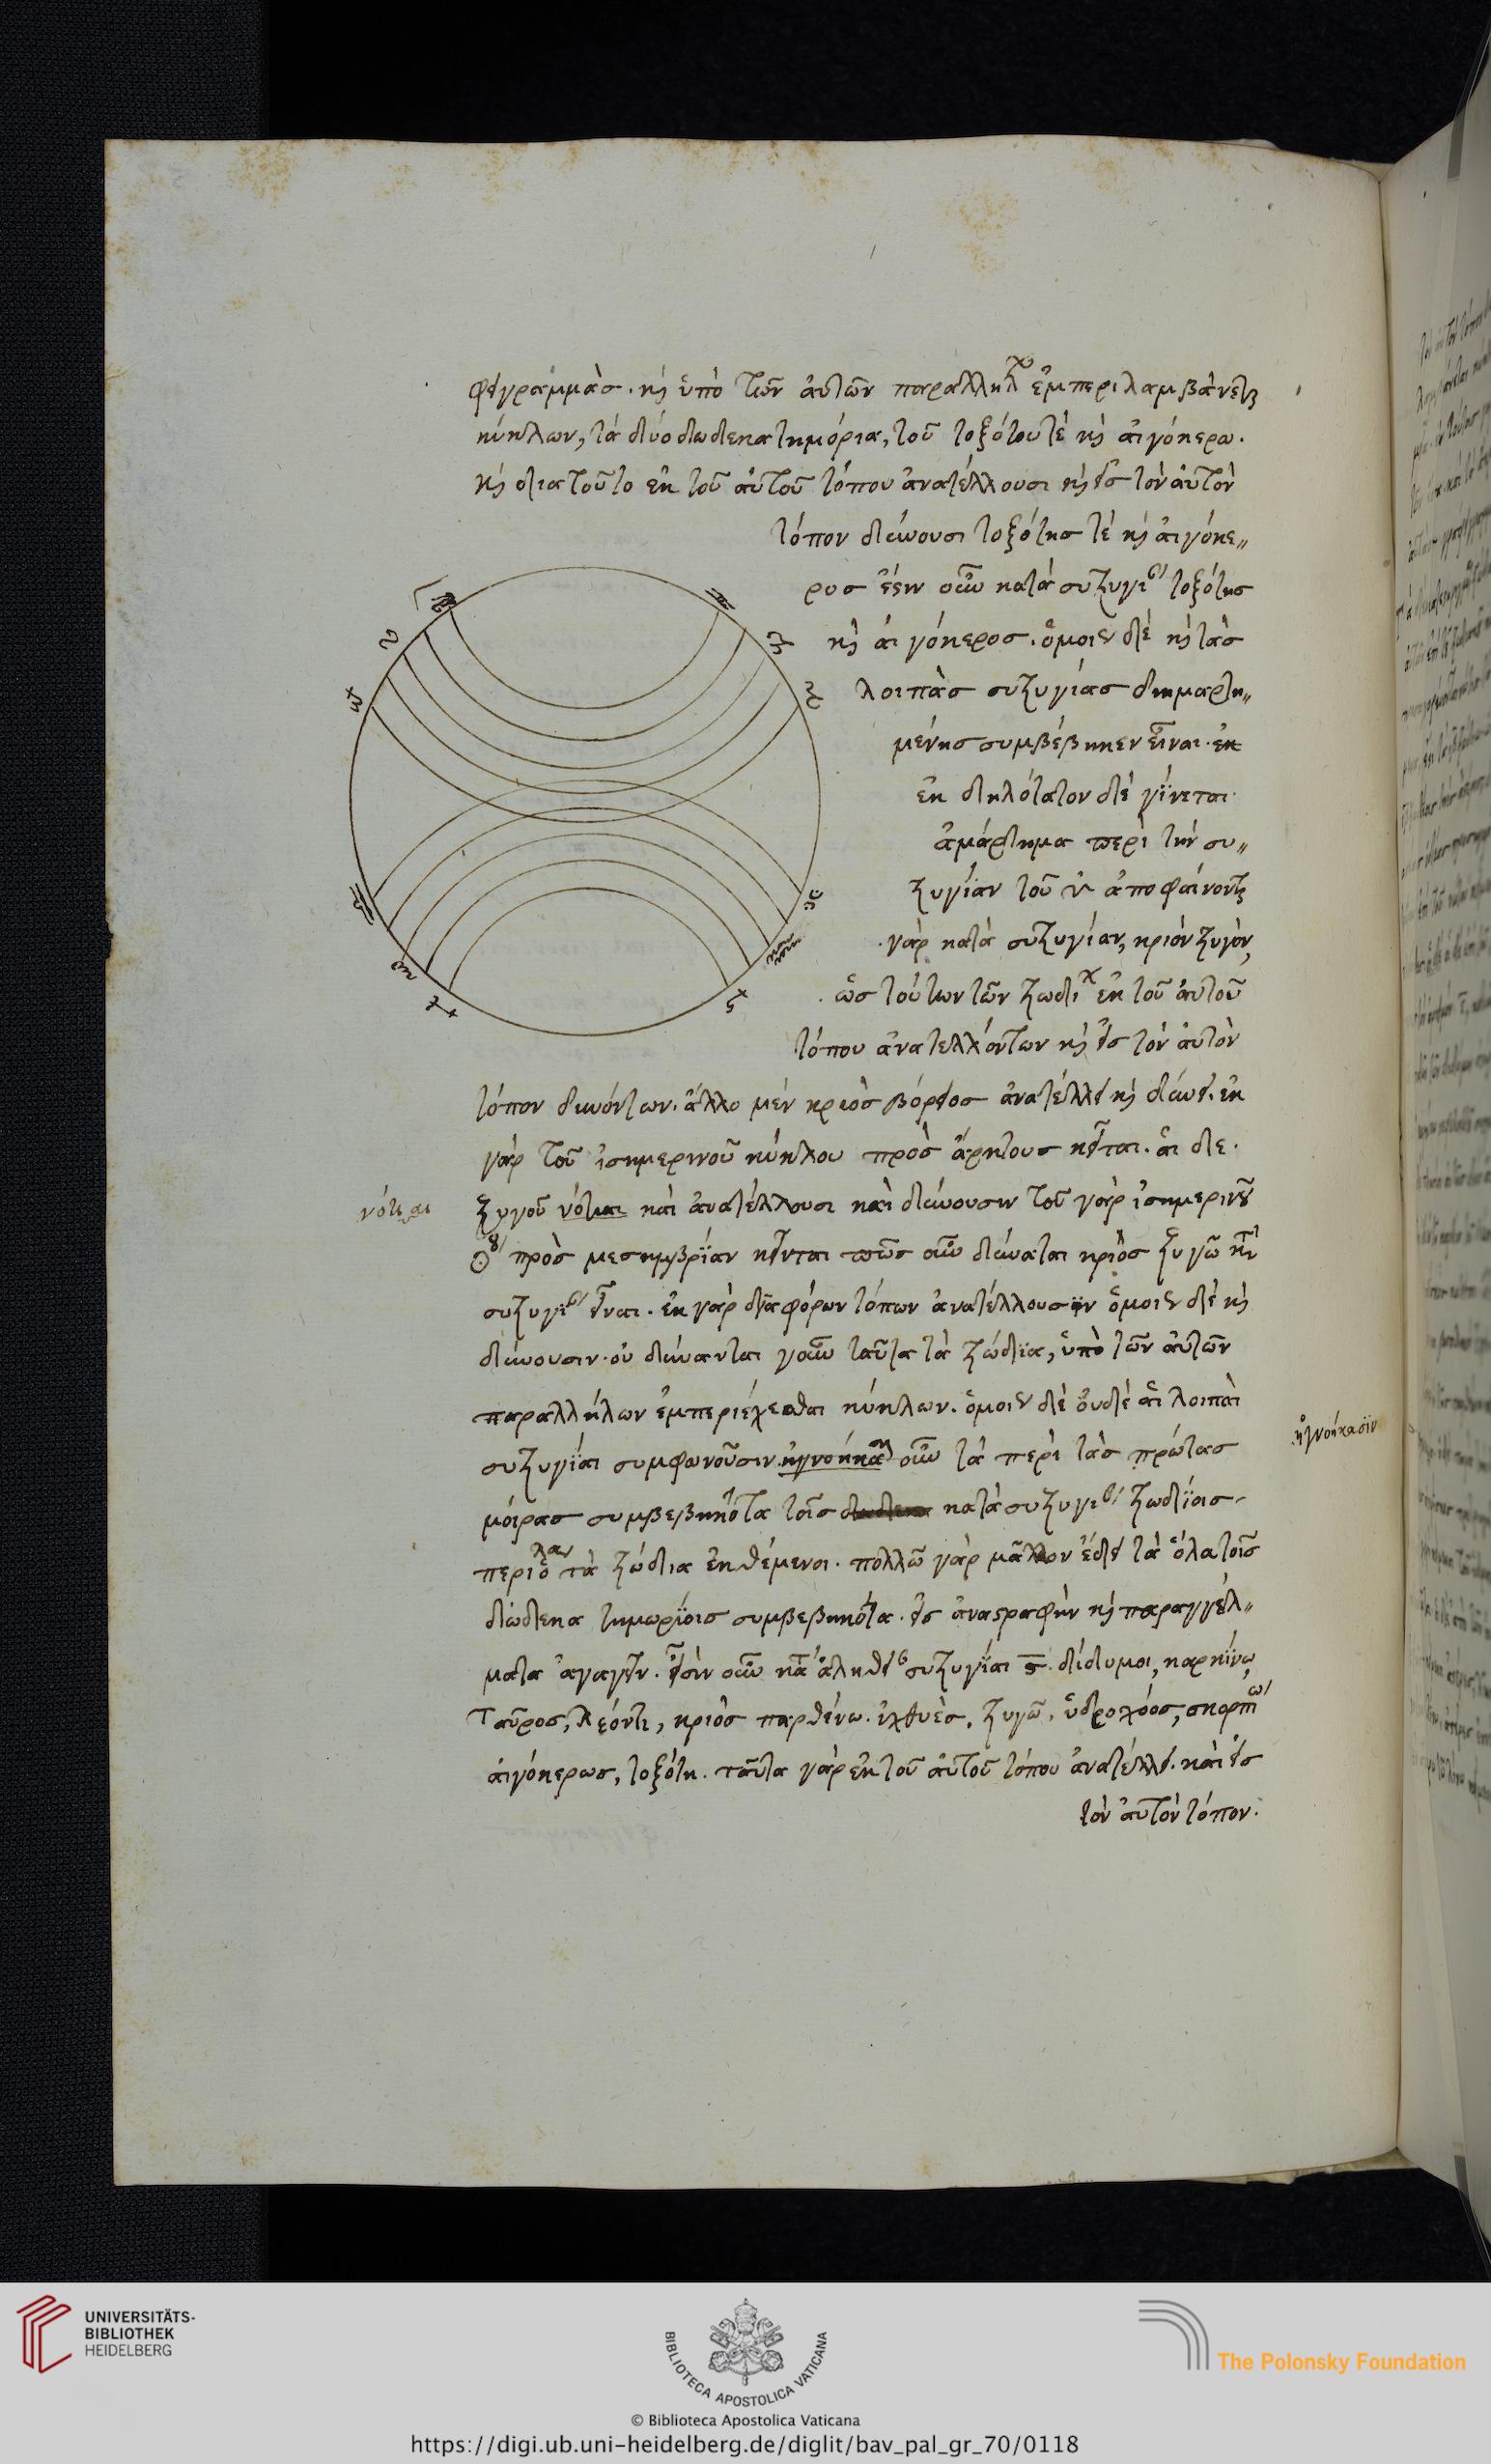 φει γραμμὰσ. καὶ ὑπὸ τῶν ἀυτῶν παραλλήλων ἐμπεριλαμβάνεται
κύκλων, τὰ δύο δωδεκατημόρια, τοῦ τοξότου τὲ καὶ ἀιγόκερω.
καὶ διατοῦτο ἐκ τοῦ ἀυτοῦ τόπου ἀνατέλλουσι καὶ εἰσ τὸν ἀυτὸν
τόπον δύνουσι τοξότησ τὲ καὶ ἀιγόκε„
ροσ οὖν κατὰ συζυγίαν τοξότησ
καὶ ἀιγόκεροσ. ὁμοίωσ δὲ καὶ τὰσ
λοιπὰσ συζυγίασ διημαρτη„
μένησ συμβέβηκεν εἶναι. ἐκ
ἐκ δηλότατον δὲ γίνεται
ἁμάρτημα περὶ τὴν συ„
ζυγίαν τοῦ ἀποφαίνονται
γὰρ κατὰ συζυγίαν, κριὸν ζυγὸν,
ὡσ τούτων τῶν ζωδίων ἐκ τοῦ ἀυτοῦ
τόπου ἀνατελλόντων καὶ εἰσ τὸν ἀυτὸν
τόπον δυνόντων. ἄλλο μὲν κριὸσ βόρειοσ ἀνατέλλει καὶ δύνει. ἐκ
γὰρ τοῦ ἰσημερινοῦ κύκλου πρὸσ ἄρκτουσ κεῖται. ἁι δὲ.
νότιαι
ζυγοῦ νότιαι καὶ ἀνατέλλουσι καὶ δύνουσιν τοῦ γὰρ ἰσημερινοῦ
πρὸσ μεσημβρίαν κεῖνται πῶσ οὖν δύναται κριὸσ ζυγῶ κατὰ
συζυγίαν εἶναι. ἐκ γὰρ διαφόρων τόπων ἀνατέλλουσιν ὁμοίωσ δὲ καὶ
δύνουσιν. οὐ δύνανται γοῦν ταῦτα τὰ ζώδια, ὑπὸ τῶν ἀυτῶν
παραλλήλων ἐμπεριέχεσθαι κύκλων. ὁμοίωσ δὲ ὀυδὲ ἁι λοιπαὶ
συζυγίαι συμφωνοῦσιν. ἠγνοήκασιν οὖν τὰ περὶ τὰσ πρώτασ
ἠγνοήκασϊν
μοίρασ συμβεβηκότα τοῖσ κατὰ συζυγίαν ζωδίοισ
περὶ ὅλα τὰ ζώδια ἐκθέμενοι. πολλῶ γὰρ μᾶλλον ἔδει τὰ ὅλα τοῖσ
δώδεκα τημωρίοισ συμβεβηκότα. εἰσ ἀναστραφὴν καὶ παραγγέλ„
ματα ἀγαγεῖν. εἰσὶν οὖν κατὰ ἀλήθειαν συζυγίαι ϛ. δίδυμοι, καρκίνω,
Ταῦροσ, λέοντι, κριὸσ παρθένω. ἰχθυὲσ, ζυγῶ, ὑδροχόοσ, σκορπίω
ἀιγόκερωσ, τοξότη. ταῦτα γὰρ ἐκ τοῦ ἀυτοῦ τόπου ἀνατέλλει. καὶ εἰσ
τὸν ἀυτὸν τόπον.
UNIVERSITÄTS-
BIBLIOTHEK
HEIDELBERG
BIBLIOTECA APOSTOLICA VATICANA
The Polonsky Foundation
© Biblioteca Apostolica Vaticana
https://digi.ub.uni-heidelberg.de/diglit/bav_pal_gr_70/0118